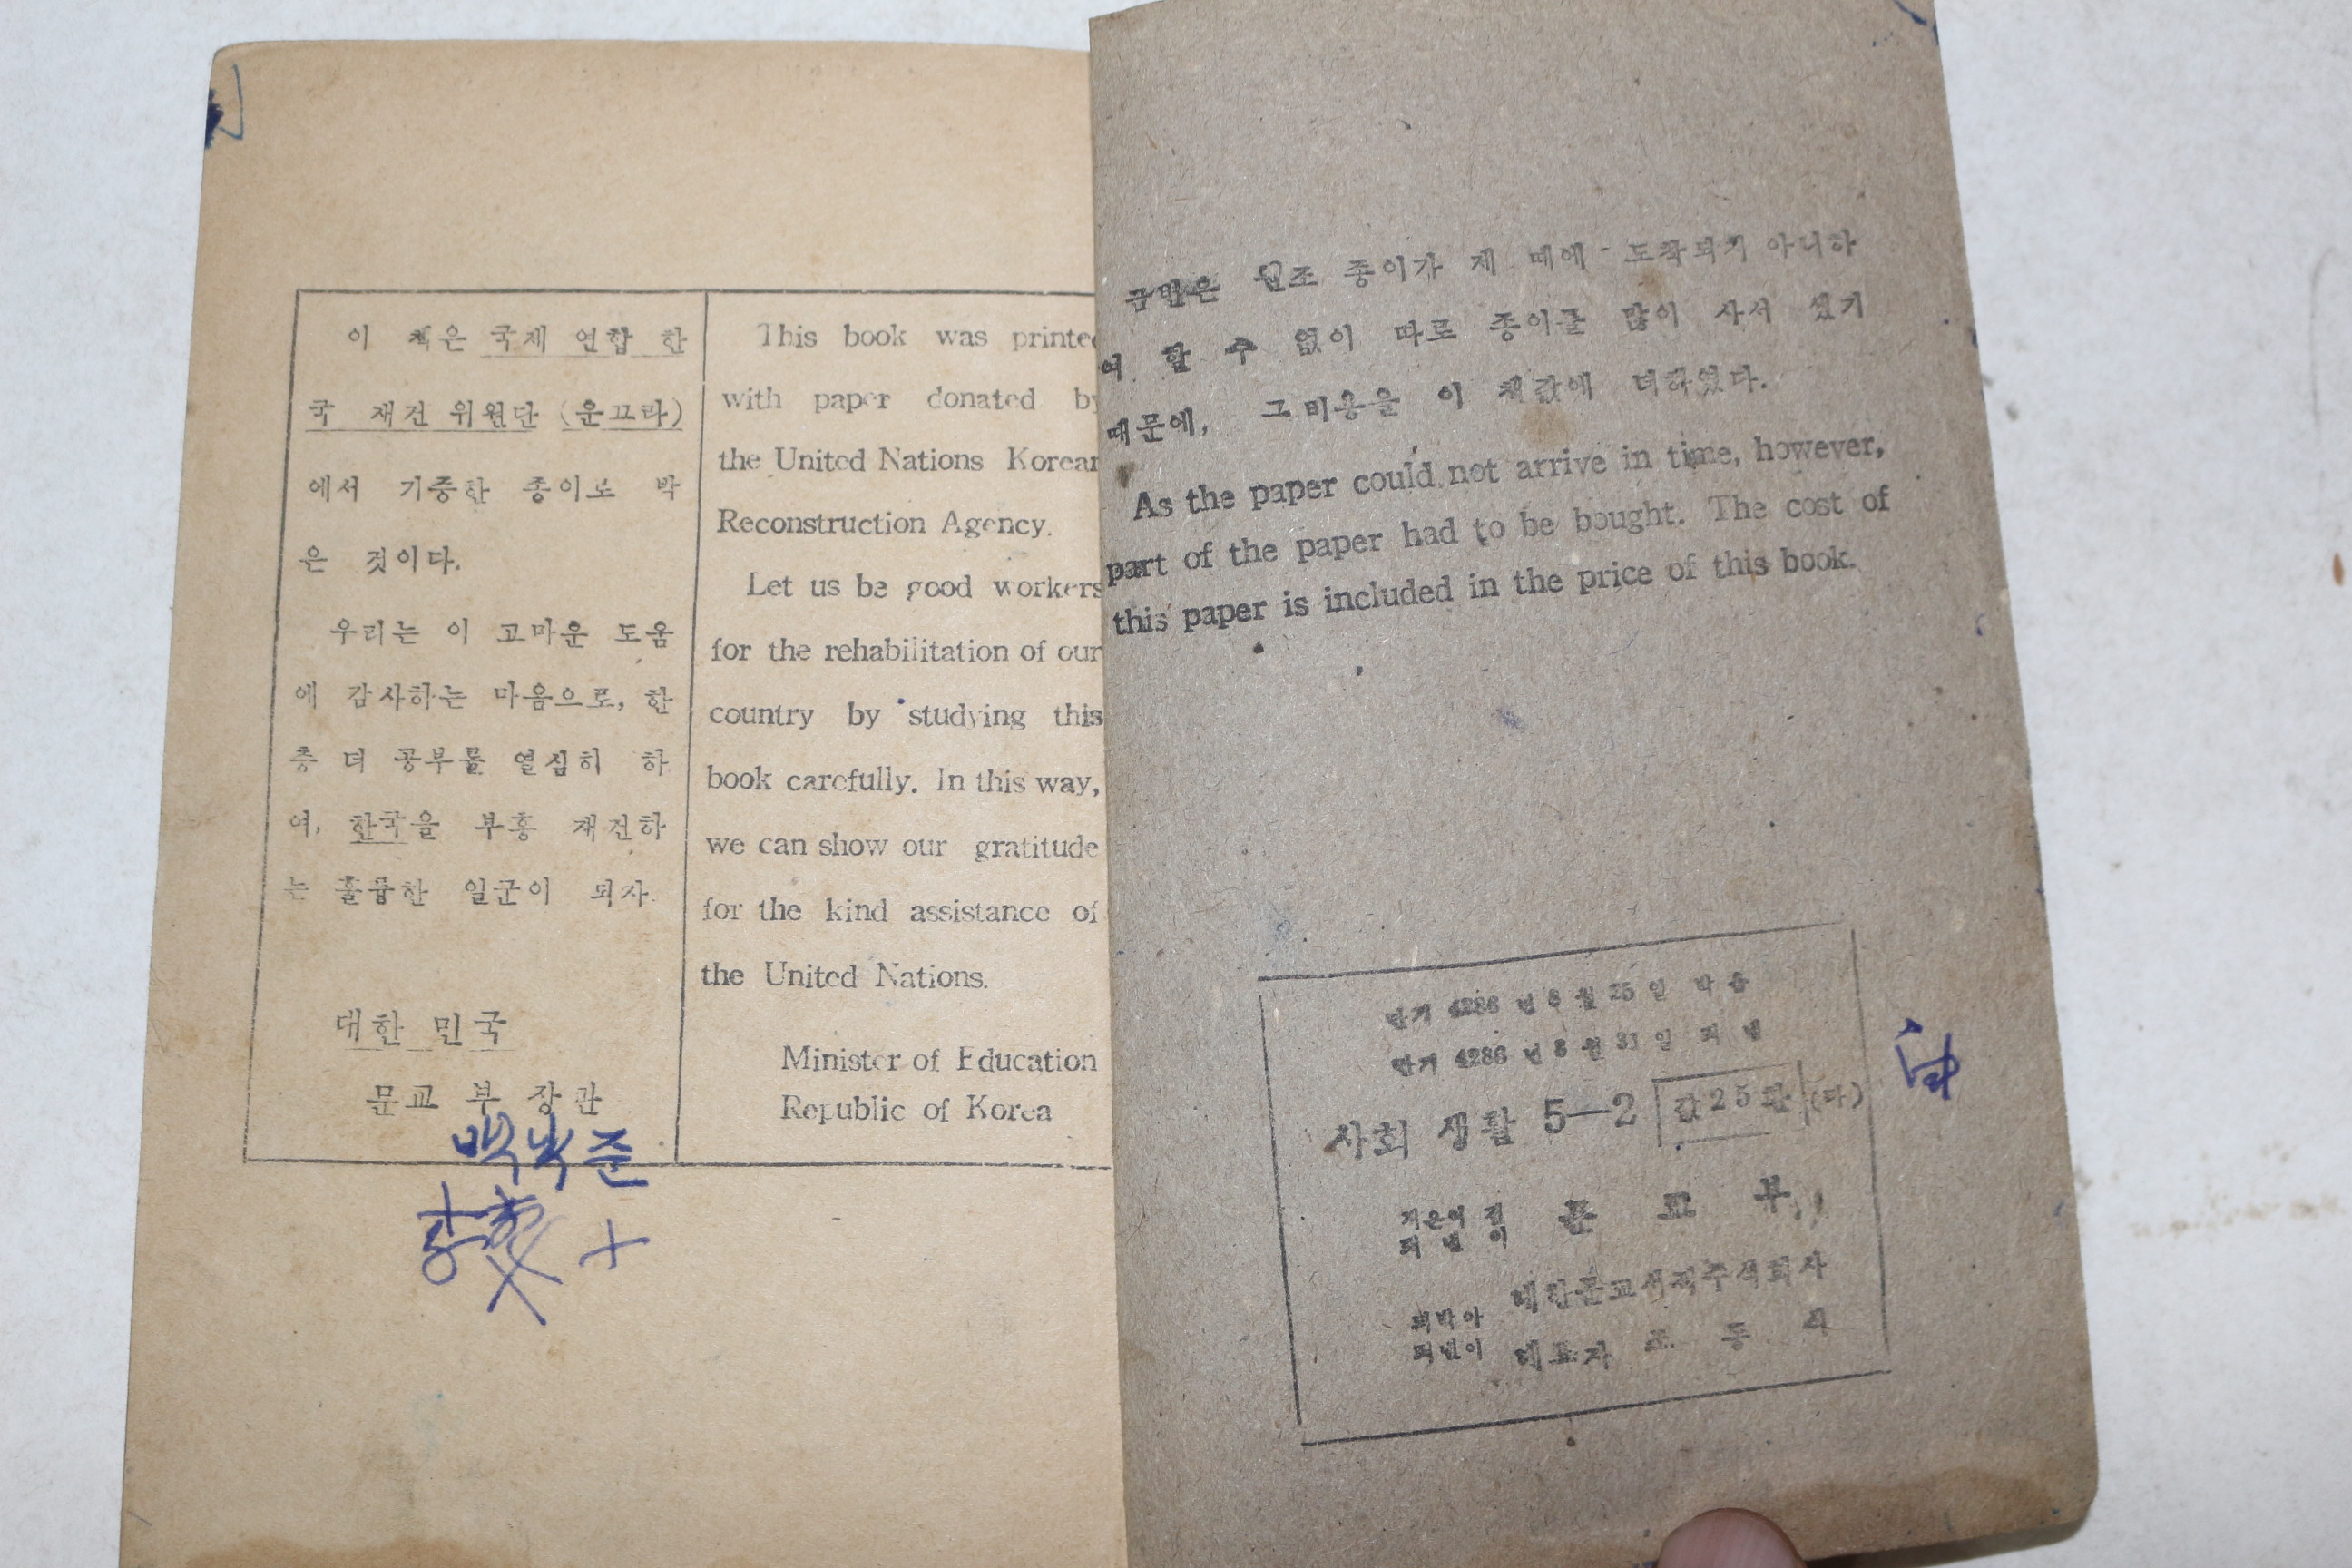 이 책은 국제 연합 한
국 재건 위원단 (운끄라)
에서 기증한 종이로 박
은 것이다.
우리는 이 고마운 도움
에 감사하는 마음으로, 한
층 더 공부를 열심히 하
여, 한국을 부흥 재건하
는 훌륭한 일군이 되자.
대한 민국
문교 부 장관
백낙준
This book was printed
with paper donated by
the United Nations Korean
Reconstruction Agency.
Let us be good workers
for the rehabilitation of our
country by studying this
book carefully. In this way,
we can show our gratitude
for the kind assistance of
the United Nations.
Minister of Education
Republic of Korea
금번은 원조 종이가 제 때에 도착되지 아니하
여 할 수 없이 따로 종이를 많이 사서 썼기
때문에, 그 비용을 이 책값에 더하였다.
As the paper could not arrive in time, however,
part of the paper had to be bought. The cost of
this paper is included in the price of this book.
단기 4286 년 8 월 25 일 박음
단기 4286 년 8 월 31 일 펴냄
사회 생활 5—2 값 25 환 (다)
지은이 겸
펴낸이 문 교 부
대한문교서적주식회사
펴낸이 대표자 조 동